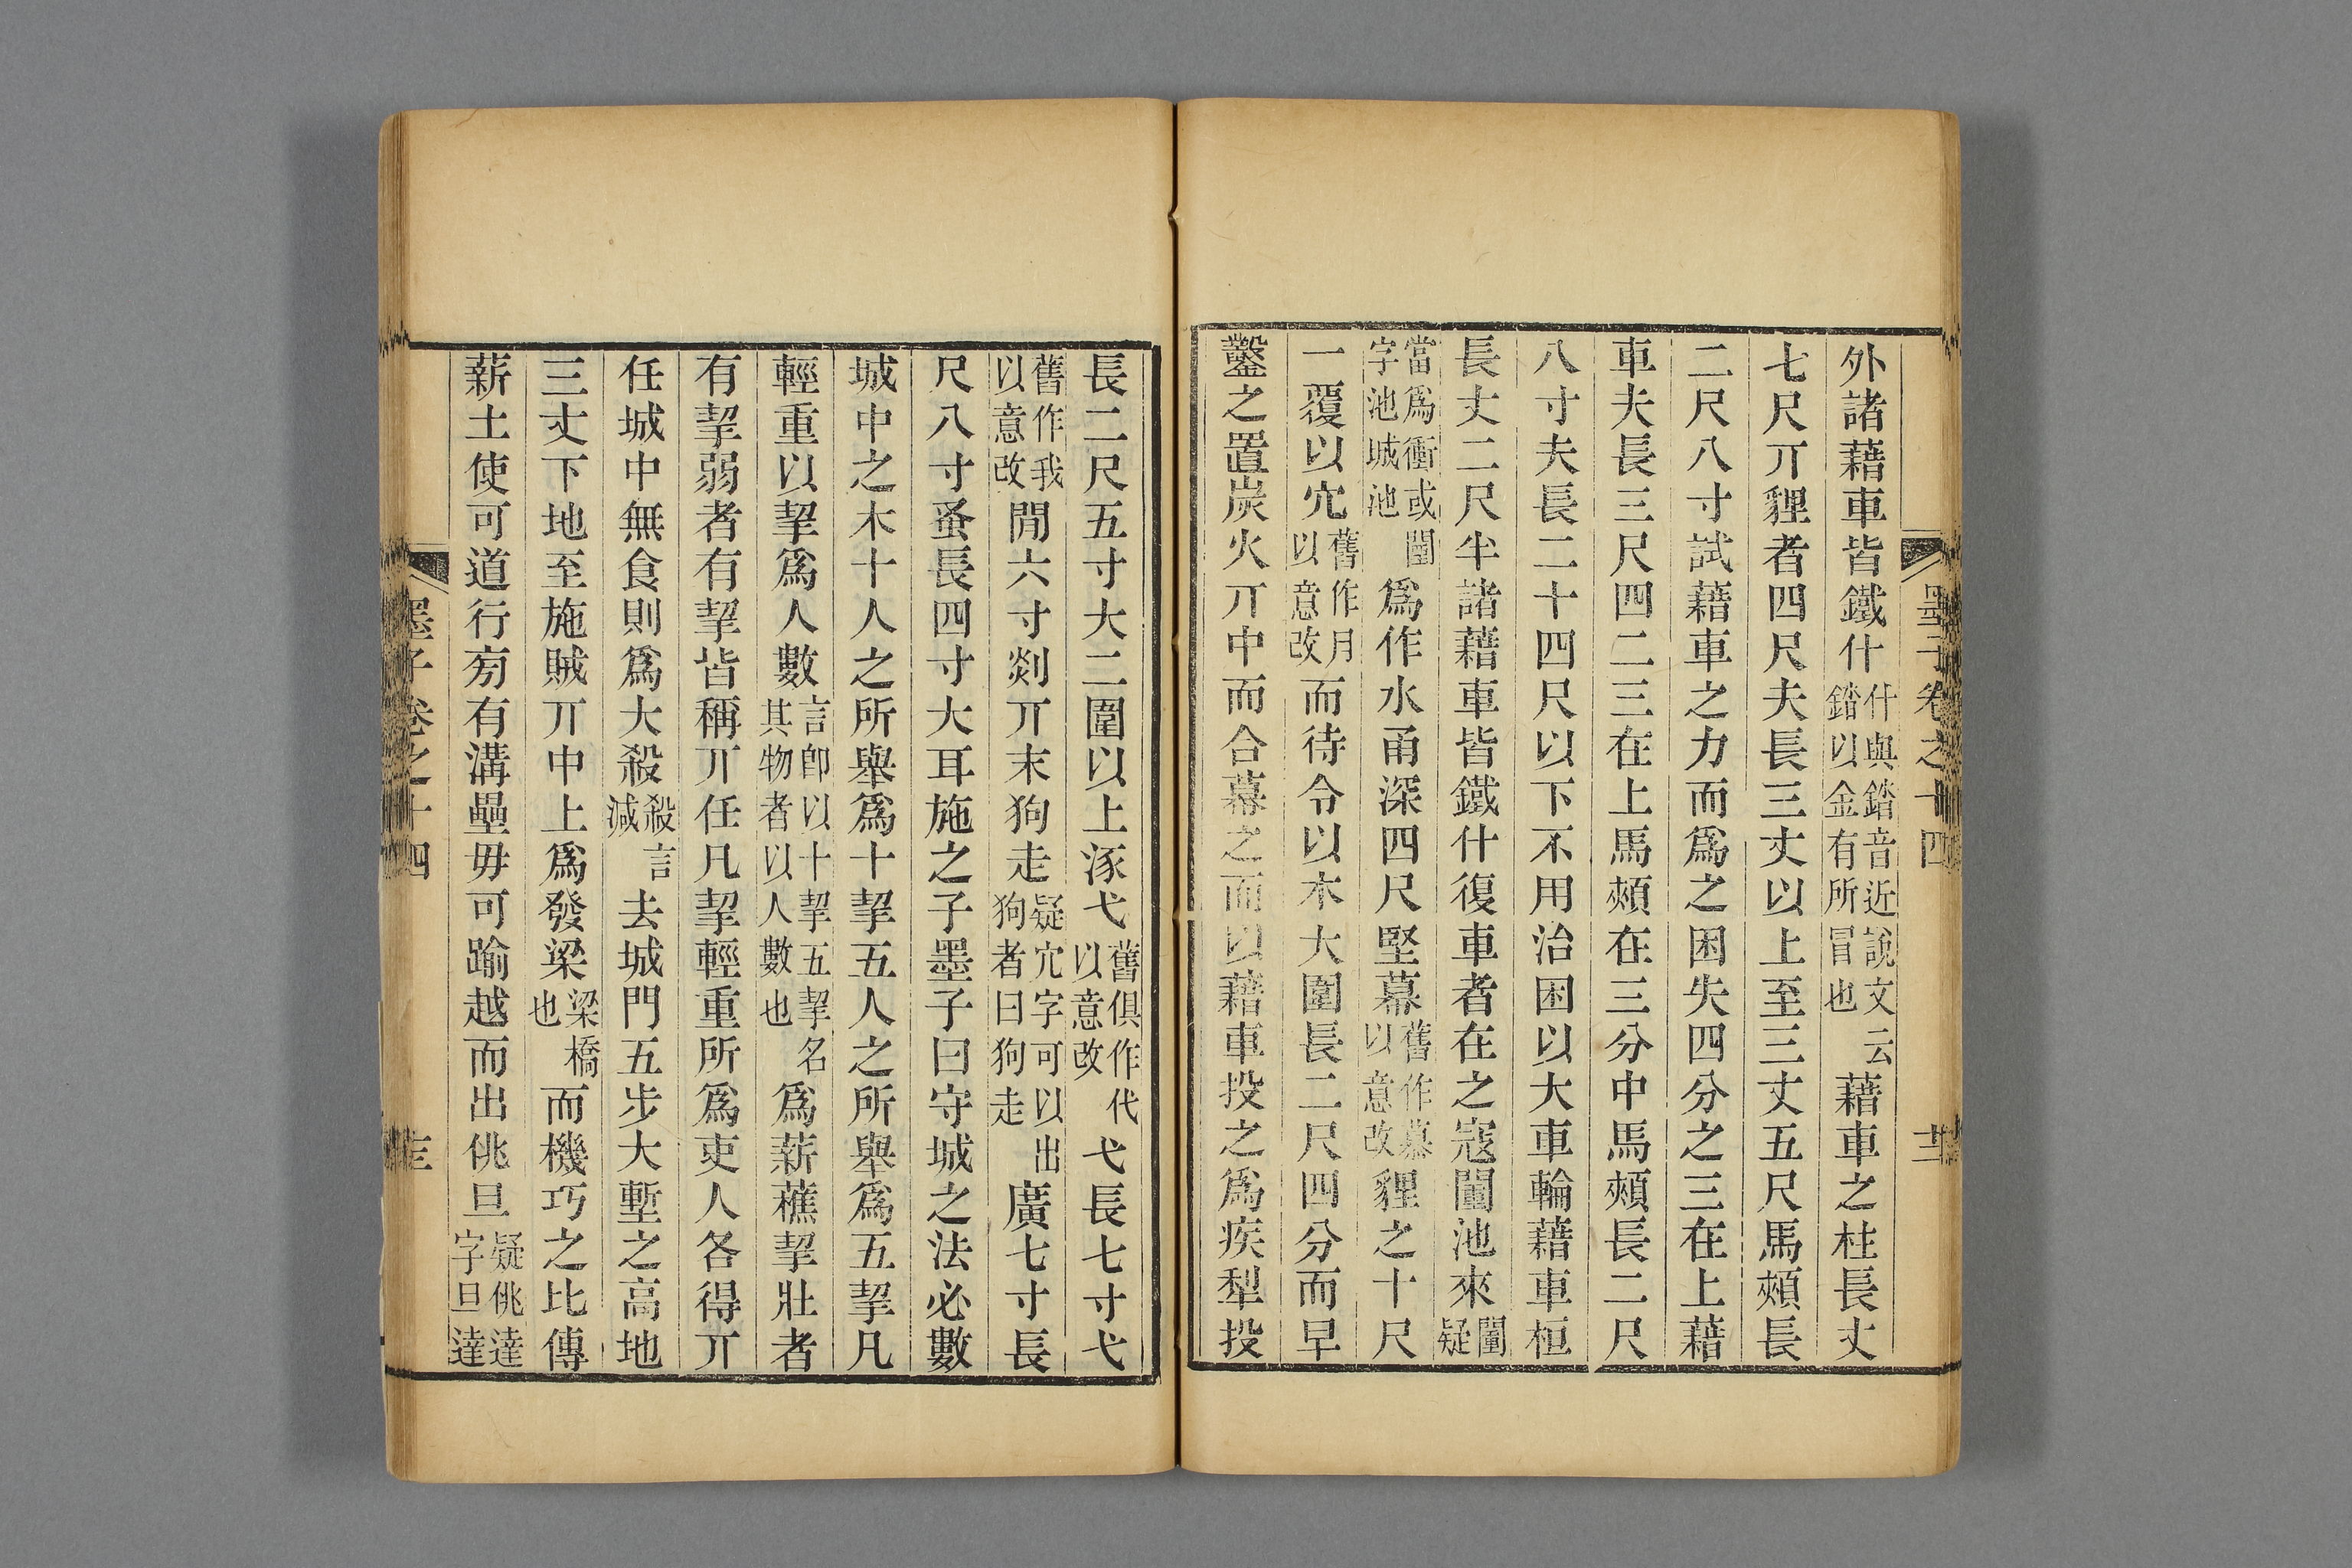 墨子卷之十四
外諸藉車皆鐵什什與錔音近說文云錔以金有所冒也藉車之柱長丈
七尺丌貍者四尺夫長三丈以上至三丈五尺馬頰長
二尺八寸試藉車之力而爲之困失四分之三在上藉
車夫長三尺四二三在上馬頰在三分中馬頰長二尺
八寸夫長二十四尺以下不用治困以大車輪藉車桓
長丈二尺半諸藉車皆鐵什復車者在之寇闉池來闉疑
當爲衝或闉字池城池爲作水甬深四尺堅幕舊作慕以意改貍之十尺
一覆以穴舊作月以意改而待令以木大圍長二尺四分而早
鑿之置炭火丌中而合幕之而以藉車投之爲疾犁投
長二尺五寸大二圍以上涿弋舊俱作代以意改弋長七寸弋
舊作我以意改閒六寸剡丌末狗走疑穴字可以出狗者曰狗走廣七寸長
尺八寸蚤長四寸大耳施之子墨子曰守城之法必數
城中之木十人之所舉爲十挈五人之所舉爲五挈凡
輕重以挈爲人數言卽以十挈五挈名其物者以人數也爲薪蕉挈壯者
有挈弱者有挈皆稱丌任凡挈輕重所爲吏人各得丌
任城中無食則爲大殺殺言減去城門五步大塹之高地
三丈下地至施賊丌中上爲發梁梁橋也而機巧之比傳
薪土使可道行旁有溝壘毋可踰越而出佻旦疑佻達字旦達
墨子卷之十四